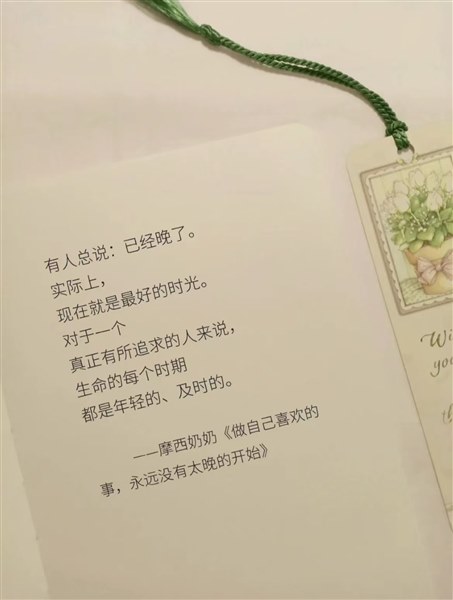 有人总说：已经晚了。
实际上，
现在就是最好的时光。
对于一个
真正有所追求的人来说，
生命的每个时期
都是年轻的、及时的。
——摩西奶奶《做自己喜欢的
事，永远没有太晚的开始》